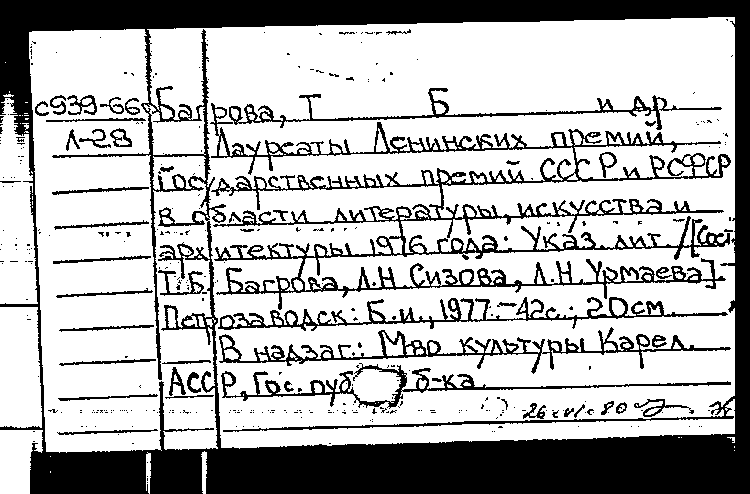 с939-66 Багрова, Т Б и др.
Л-28 Лауреаты Ленинских премий,
Государственных премий СССР и РСФСР
в области литературы, искусства и
архитектуры 1976 года: Указ. лит. / [Сост.
Т. Б. Багрова, Л. Н. Сизова, Л. Н. Урмаева]. -
Петрозаводск: Б. и., 1977. - 42с.; 20см.
В надзаг.: М-во культуры Карел.
АССР, Гос. пуб б-ка.
26.VI.80